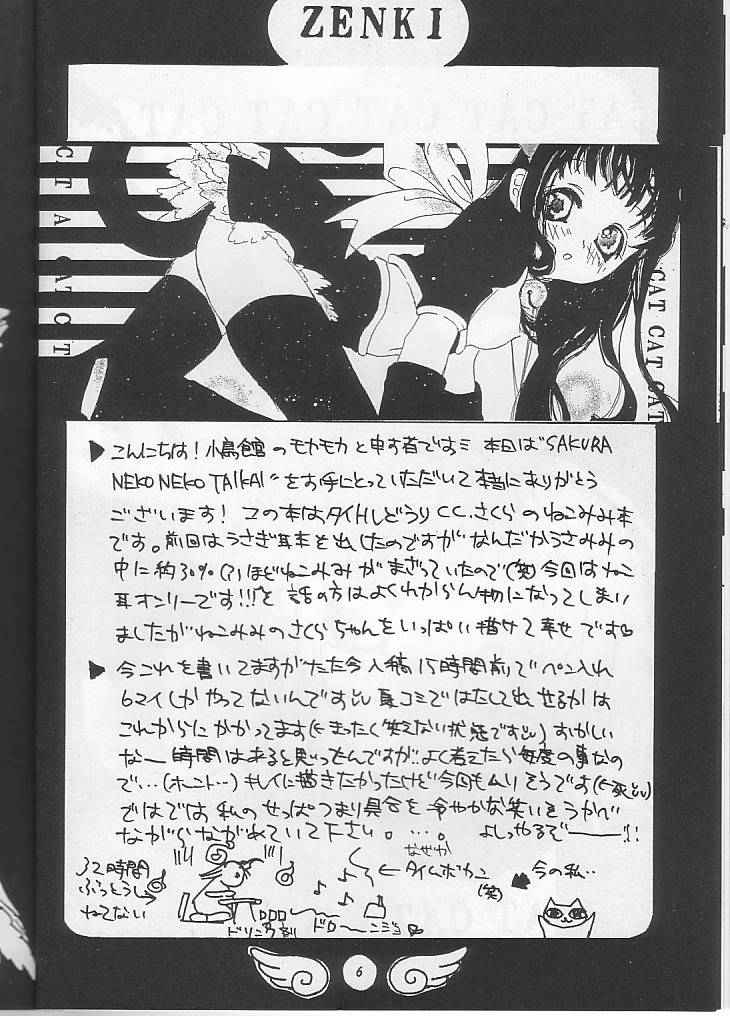 ZENKI
CAT CAT CAT
▶ こんにちは！小鳥館のモカモカと申す者ですミ 本日は"SAKURA
NEKO NEKO TAIKAI"をお手にとっていただいて本当にありがとう
ございます！ この本はタイトルどうり C.C.さくらのねこみみ本
です。前回はうさぎ耳本を出したのですがなんだかうさみみの
中に約30%(?)ほどねこみみがまざっていたので(笑)今回はねこ
耳オンリーです!!!と 話の方はよくわからん物になってしまい
ましたがねこみみのさくらちゃんをいっぱい描けて幸せです♡
▶ 今これを書いてますがただ今入稿15時間前でペン入れ
6マイしかやってないんです 夏コミではたして出せるかは
これからにかかってます(←まったく笑えない状態です)おかしい
なー時間はあると思ってたんですが‥よく考えたら毎度の事なの
で…(ホント…)キレイに描きたかったけど今回もムリそうです(←死)
ではでは私のせっぱつまり具合を冷ややかな笑いをうかべ
ながらながめていて下さい。…。 よしっやるぞーーー!!
32時間
ぶっとうし
ねてない
なぜか
←タイムボカン
(笑)
今の私‥
6